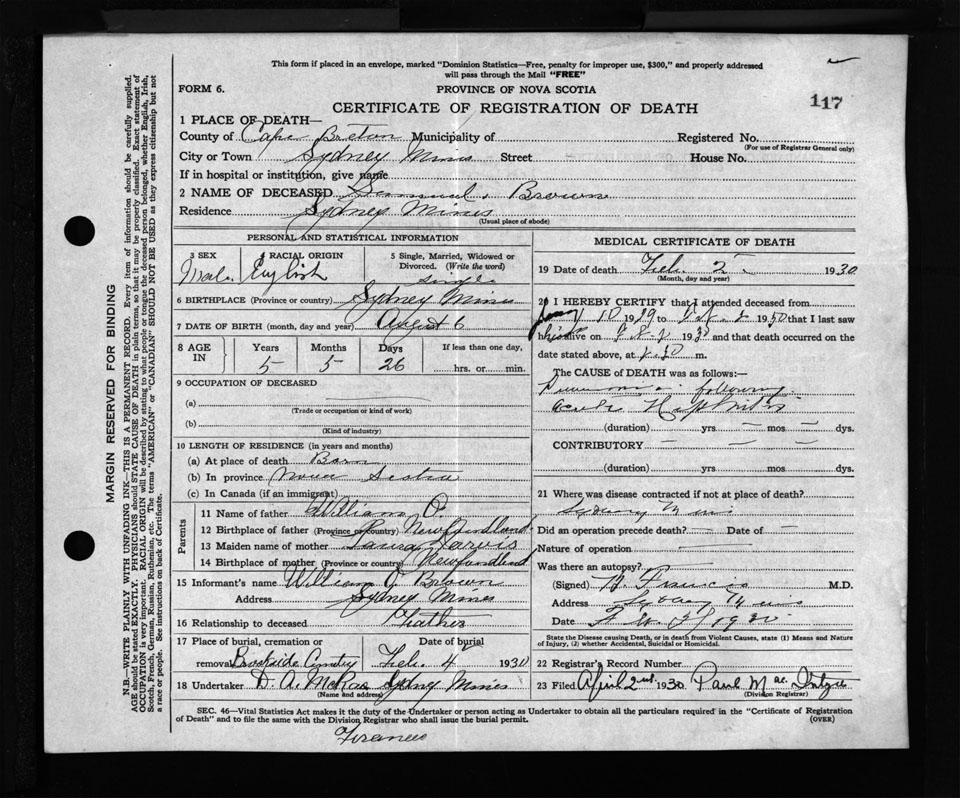 This form if placed in an envelope, marked "Dominion Statistics—Free, penalty for improper use, $300," and properly addressed
will pass through the Mail "FREE"
117
FORM 6.
PROVINCE OF NOVA SCOTIA
CERTIFICATE OF REGISTRATION OF DEATH
1 PLACE OF DEATH—
County of Cape Breton Municipality of Registered No.
(For use of Registrar General only)
City or Town Sydney Mines Street House No.
If in hospital or institution, give name
2 NAME OF DECEASED Samuel Brown
Residence Sydney Mines
(Usual place of abode)
PERSONAL AND STATISTICAL INFORMATION
3 SEX 4 RACIAL ORIGIN 5 Single, Married, Widowed or
Divorced. (Write the word)
Male English single
6 BIRTHPLACE (Province or country) Sydney Mines
7 DATE OF BIRTH (month, day and year) August 6
8 AGE IN Years Months Days If less than one day,
5 5 26 hrs. or min.
9 OCCUPATION OF DECEASED
(a)
(Trade or occupation or kind of work)
(b)
(Kind of industry)
10 LENGTH OF RESIDENCE (in years and months)
(a) At place of death Born
(b) In province Nova Scotia
(c) In Canada (if an immigrant)
Parents
11 Name of father William O.
12 Birthplace of father (Province or country) Newfoundland
13 Maiden name of mother Laura Jarvis
14 Birthplace of mother (Province or country) Newfoundland
15 Informant's name William O Brown
Address Sydney Mines
16 Relationship to deceased Father
17 Place of burial, cremation or Date of burial
removal Brookside Cemtry Feb. 4 1930
18 Undertaker D. A. McRae Sydney Mines
(Name and address)
MEDICAL CERTIFICATE OF DEATH
19 Date of death Feb. 2 1930
(Month, day and year)
20 I HEREBY CERTIFY that I attended deceased from
1930 that I last saw
alive on 1930 and that death occurred on the
date stated above, at m.
The CAUSE OF DEATH was as follows:
Pneumonia following
acute Nephritis
(duration) yrs mos dys.
CONTRIBUTORY
(duration) yrs mos dys.
21 Where was disease contracted if not at place of death?
Sydney Mines
Did an operation precede death? Date of
Nature of operation
Was there an autopsy?
(Signed) Francis M.D.
Address Sydney Mines
Date
State the Disease causing Death, or in death from Violent Causes, state (1) Means and Nature
of Injury, (2) whether Accidental, Suicidal or Homicidal.
22 Registrar's Record Number
23 Filed April 2nd 1930 Paul Mac
(Division Registrar)
SEC. 46—Vital Statistics Act makes it the duty of the Undertaker or person acting as Undertaker to obtain all the particulars required in the "Certificate of Registration
of Death" and to file the same with the Division Registrar who shall issue the burial permit.
(OVER)
Francis
MARGIN RESERVED FOR BINDING
N.B.—WRITE PLAINLY WITH UNFADING INK—THIS IS A PERMANENT RECORD. Every item of information should be carefully supplied.
AGE should be stated EXACTLY. PHYSICIANS should STATE CAUSE OF DEATH in plain terms, so that it may be properly classified. Exact statement of
OCCUPATION is very important. RACIAL ORIGIN will be described by stating to what people or tongue the deceased person belonged, whether English, Irish,
Scotch, French, German, Russian, Ruthenian, etc. The terms "AMERICAN" or "CANADIAN" SHOULD NOT BE USED as they express citizenship but not
a race or people. See instructions on back of Certificate.